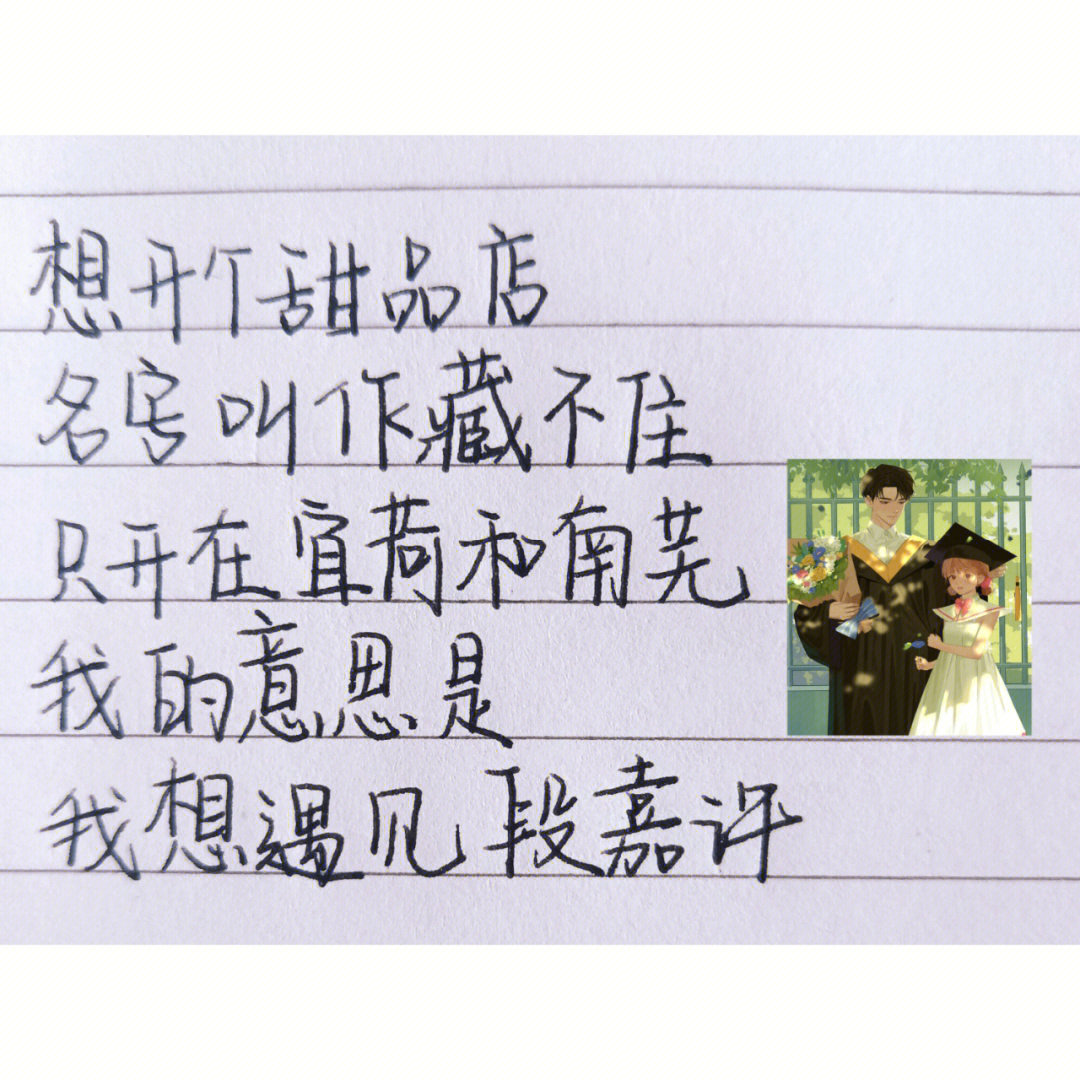 想开个甜品店
名字叫作藏不住
只开在宜荷和南芜
我的意思是
我想遇见段嘉许